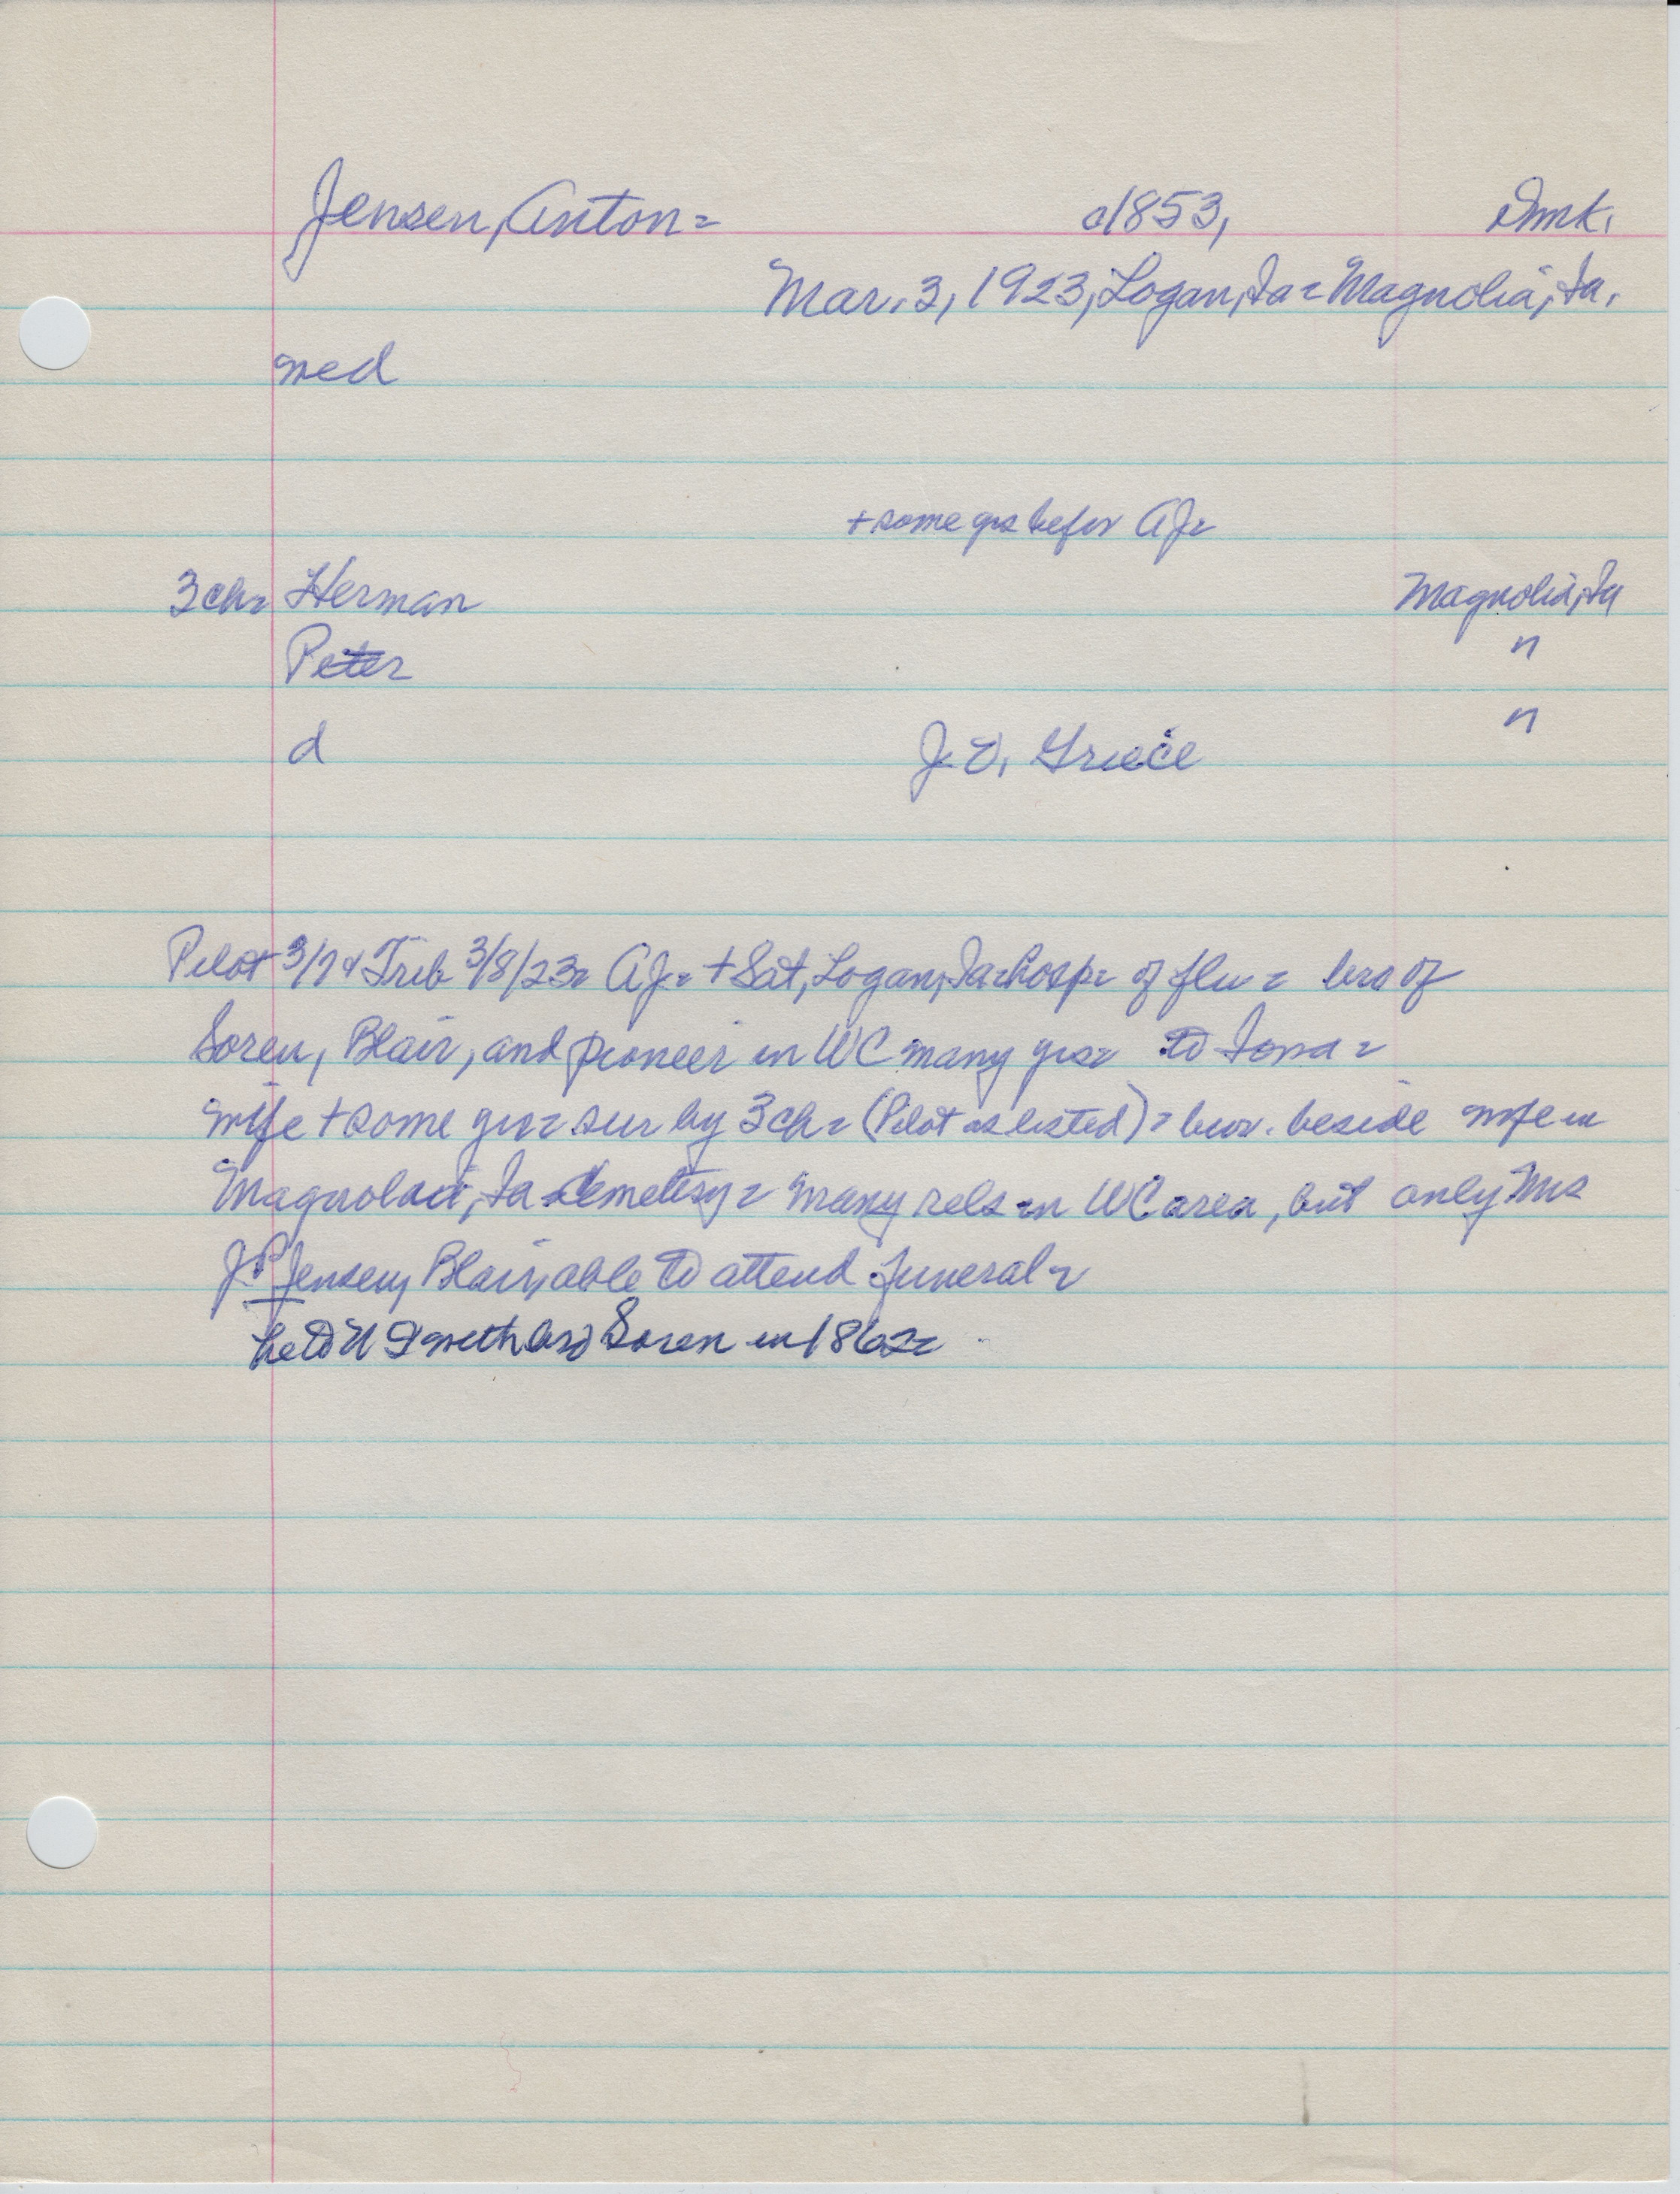 Jensen, Anton = c1853, Dmk.
Mar. 3, 1923, Logan, Ia = Magnolia, Ia.
wed
+ some yrs befor AJ =
3 ch = Herman Magnolia, Ia
Peter "
d J. O. "
Pilot 3/7 & Trib 3/8/23 = AJ = + Sat, Logan, Ia hosp = of flu = bro of
Soren, Blair, and pioneer in WC many yrs = to Iowa =
wife + some yrs = sur by 3 ch = (Pilot as listed) = bur. beside wife in
Magnolia, Ia cemetery = many rels in WC area, but only Mrs
J P Jensen, Blair, able to attend funeral =
he to N with bro Soren in 1862 =